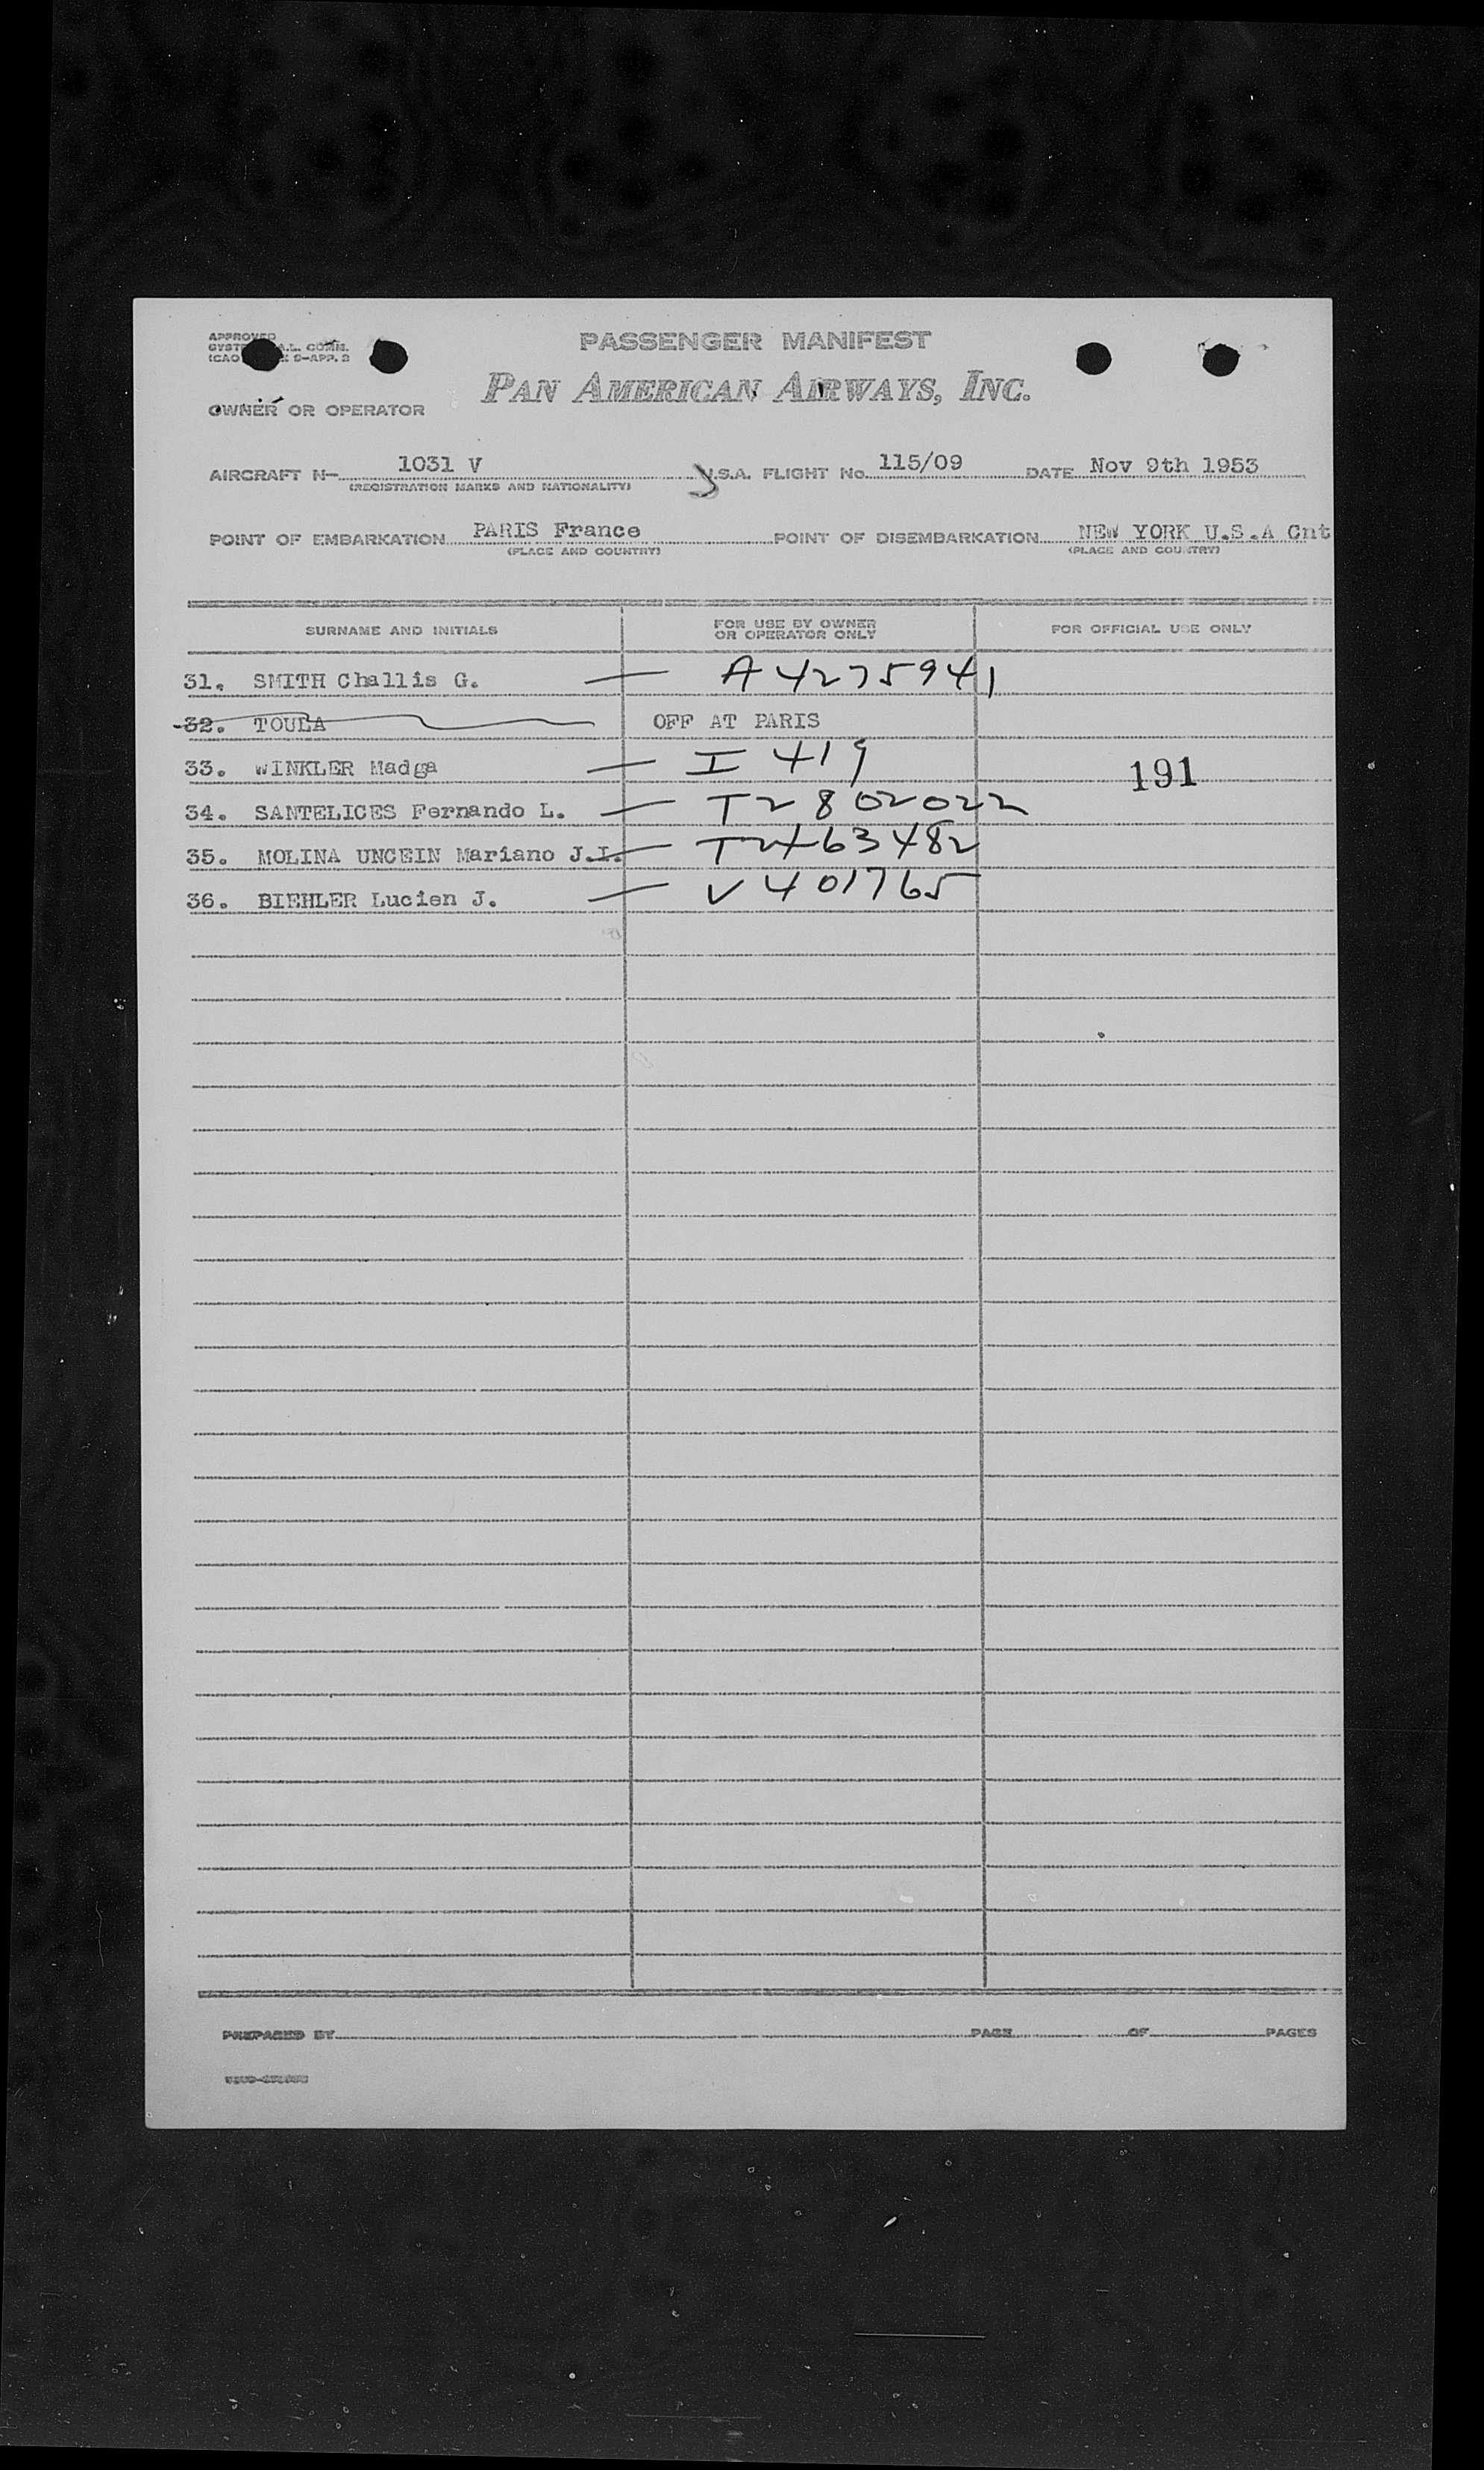 APPROVED
PASSENGER MANIFEST
PAN AMERICAN AIRWAYS, INC.
OWNER OR OPERATOR
AIRCRAFT N- 1031 V U.S.A. FLIGHT No. 115/09 DATE Nov 9th 1953
(REGISTRATION MARKS AND NATIONALITY)
POINT OF EMBARKATION PARIS France POINT OF DISEMBARKATION NEW YORK U.S.A Cnt
(PLACE AND COUNTRY) (PLACE AND COUNTRY)
SURNAME AND INITIALS FOR USE BY OWNER OR OPERATOR ONLY FOR OFFICIAL USE ONLY
31. SMITH Challis G. — A4275941
32. TOULA OFF AT PARIS
33. WINKLER Madga — I 419
191
34. SANTELICES Fernando L. — T2802022
35. MOLINA UNCEIN Mariano J.I. — T2463482
36. BIEHLER Lucien J. — V401765
PREPARED BY PAGE OF PAGES